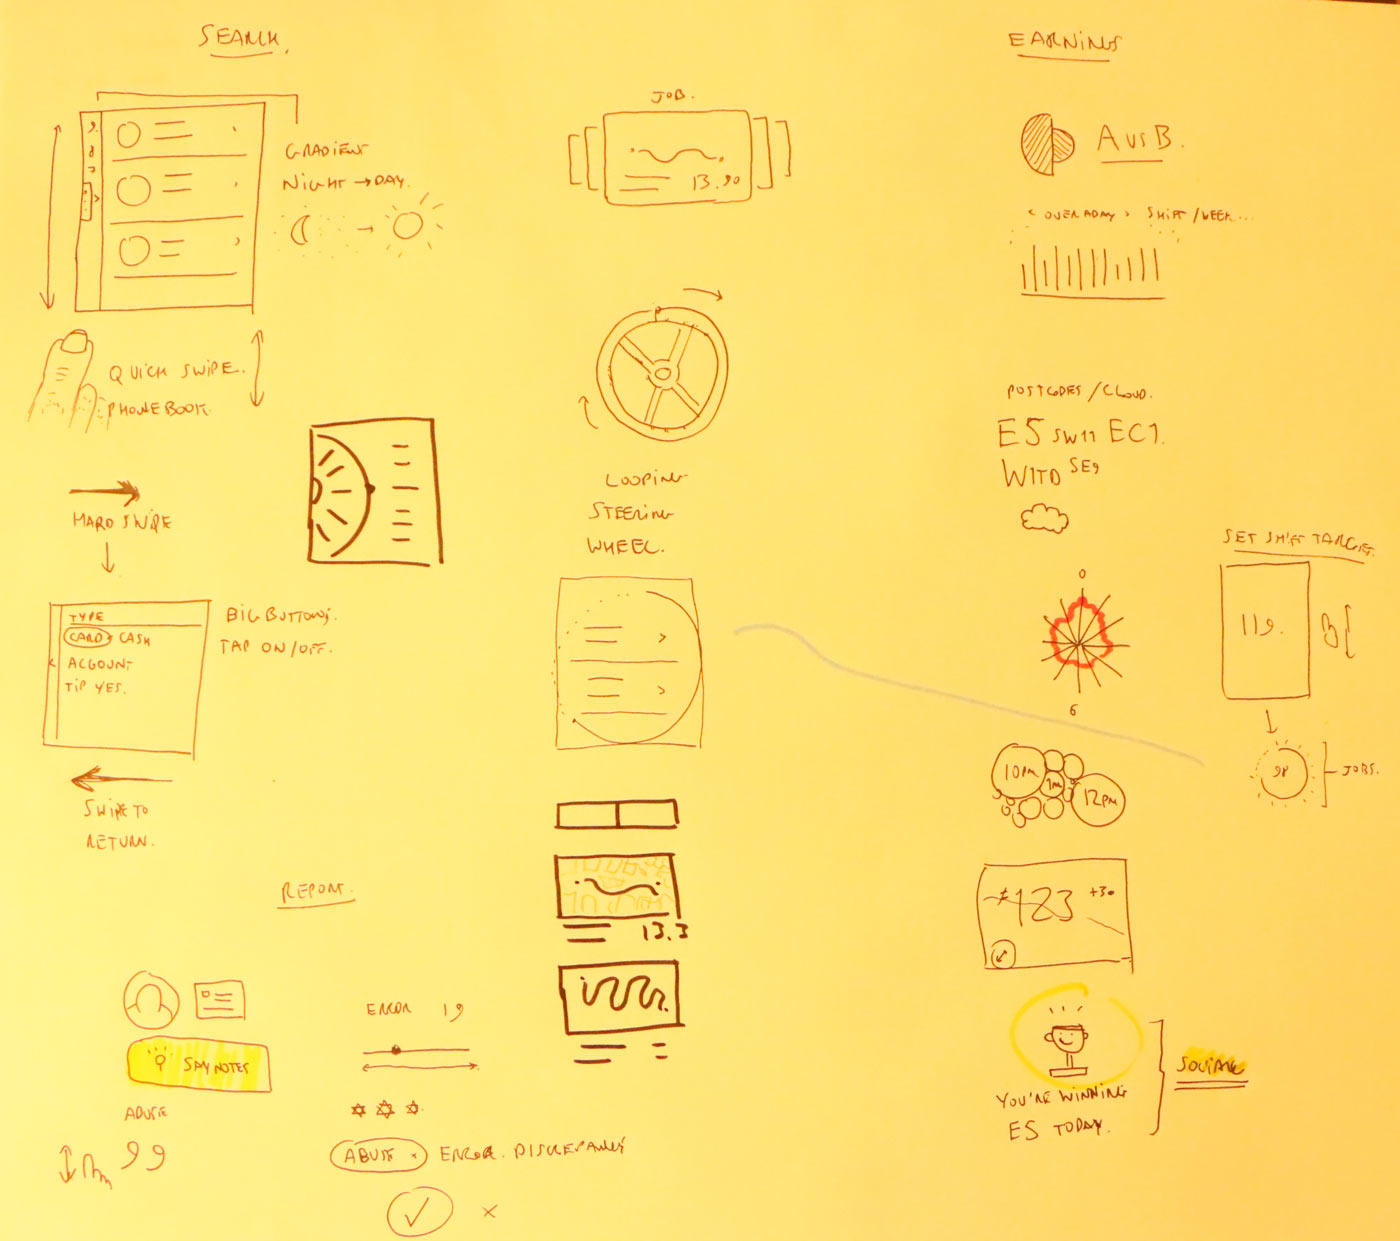 SEARCH.
GRADIENT
NIGHT → DAY.
QUICK SWIPE.
PHONEBOOK.
HARD SWIPE
TYPE
CARD CASH
ACCOUNT
TIP YES.
BIG BUTTONS.
TAP ON/OFF.
SWIPE TO
RETURN.
REPORT.
SAY NOTES
ABUSE
99
ERROR 19
ABUSE × ERROR. DISCREPANCY
✓ ×
JOB.
13.90
LOOPING
STEERING
WHEEL.
13.3
EARNINGS
A vs B.
< OVER A DAY > SHIFT/WEEK...
POSTCODES/CLOUD.
E5 SW11 EC1.
W1TD SE9
0
6
SET SHIFT TARGET.
119.
98
JOBS.
10PM
12PM
123 +30
YOU'RE WINNING
E5 TODAY.
SOCIAL